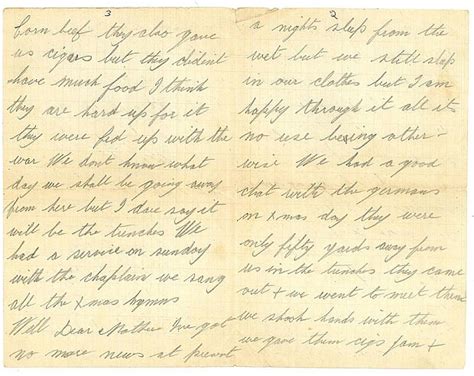 2
a nights sleep from the
wet but we still slep
in our clothes but I am
happy through it all its
no use being other-
wise We had a good
chat with the germans
on Xmas day they were
only fifty yards away from
us in the trenches they came
out & we went to meet them
we shook hands with them
we gave them cigs jam &
3
Corn beef they also gave
us cigars but they dident
have much food I think
they are hard up for it
they were fed up with the
war We dont know what
day we shall be going away
from here but I dare say it
will be the trenches We
had a service on sunday
with the chaplain we sang
all the Xmas hymns
Well Dear Mother I've got
no more news at present